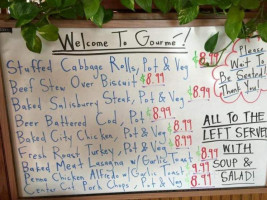 Welcome To Gourme-!
Stuffed Cabbage Rolls, Pot & Veg $8.99
Beef Stew Over Biscuit $8.99
Baked Salisbury Steak, Pot & Veg $8.99
Beer Battered Cod, Pot $8.99
Baked City Chicken, Pot & Veg $8.99
Fresh Roast Turkey, Pot & Veg $8.99
Baked Meat Lasagna w/ Garlic Toast $8.99
Chicken Alfredo w/ Garlic Toast $8.99
Center Cut Pork Chops, Pot & Veg $8.99
Please
Wait To
Be Seated!
Thank You!
ALL TO THE
LEFT SERVED
WITH
SOUP &
SALAD!